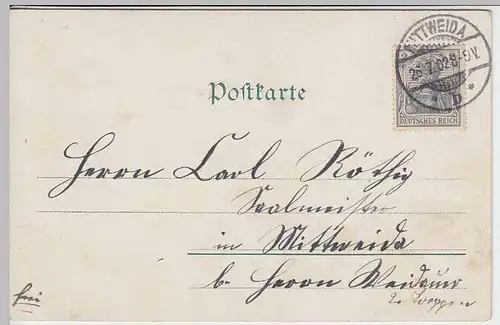 MITTWEIDA
25.7.02.8-9V.
b
DEUTSCHES REICH
Postkarte
Herrn Carl Röthig
Saalmeister
in Mittweida
b. Herrn Weidauer
frei